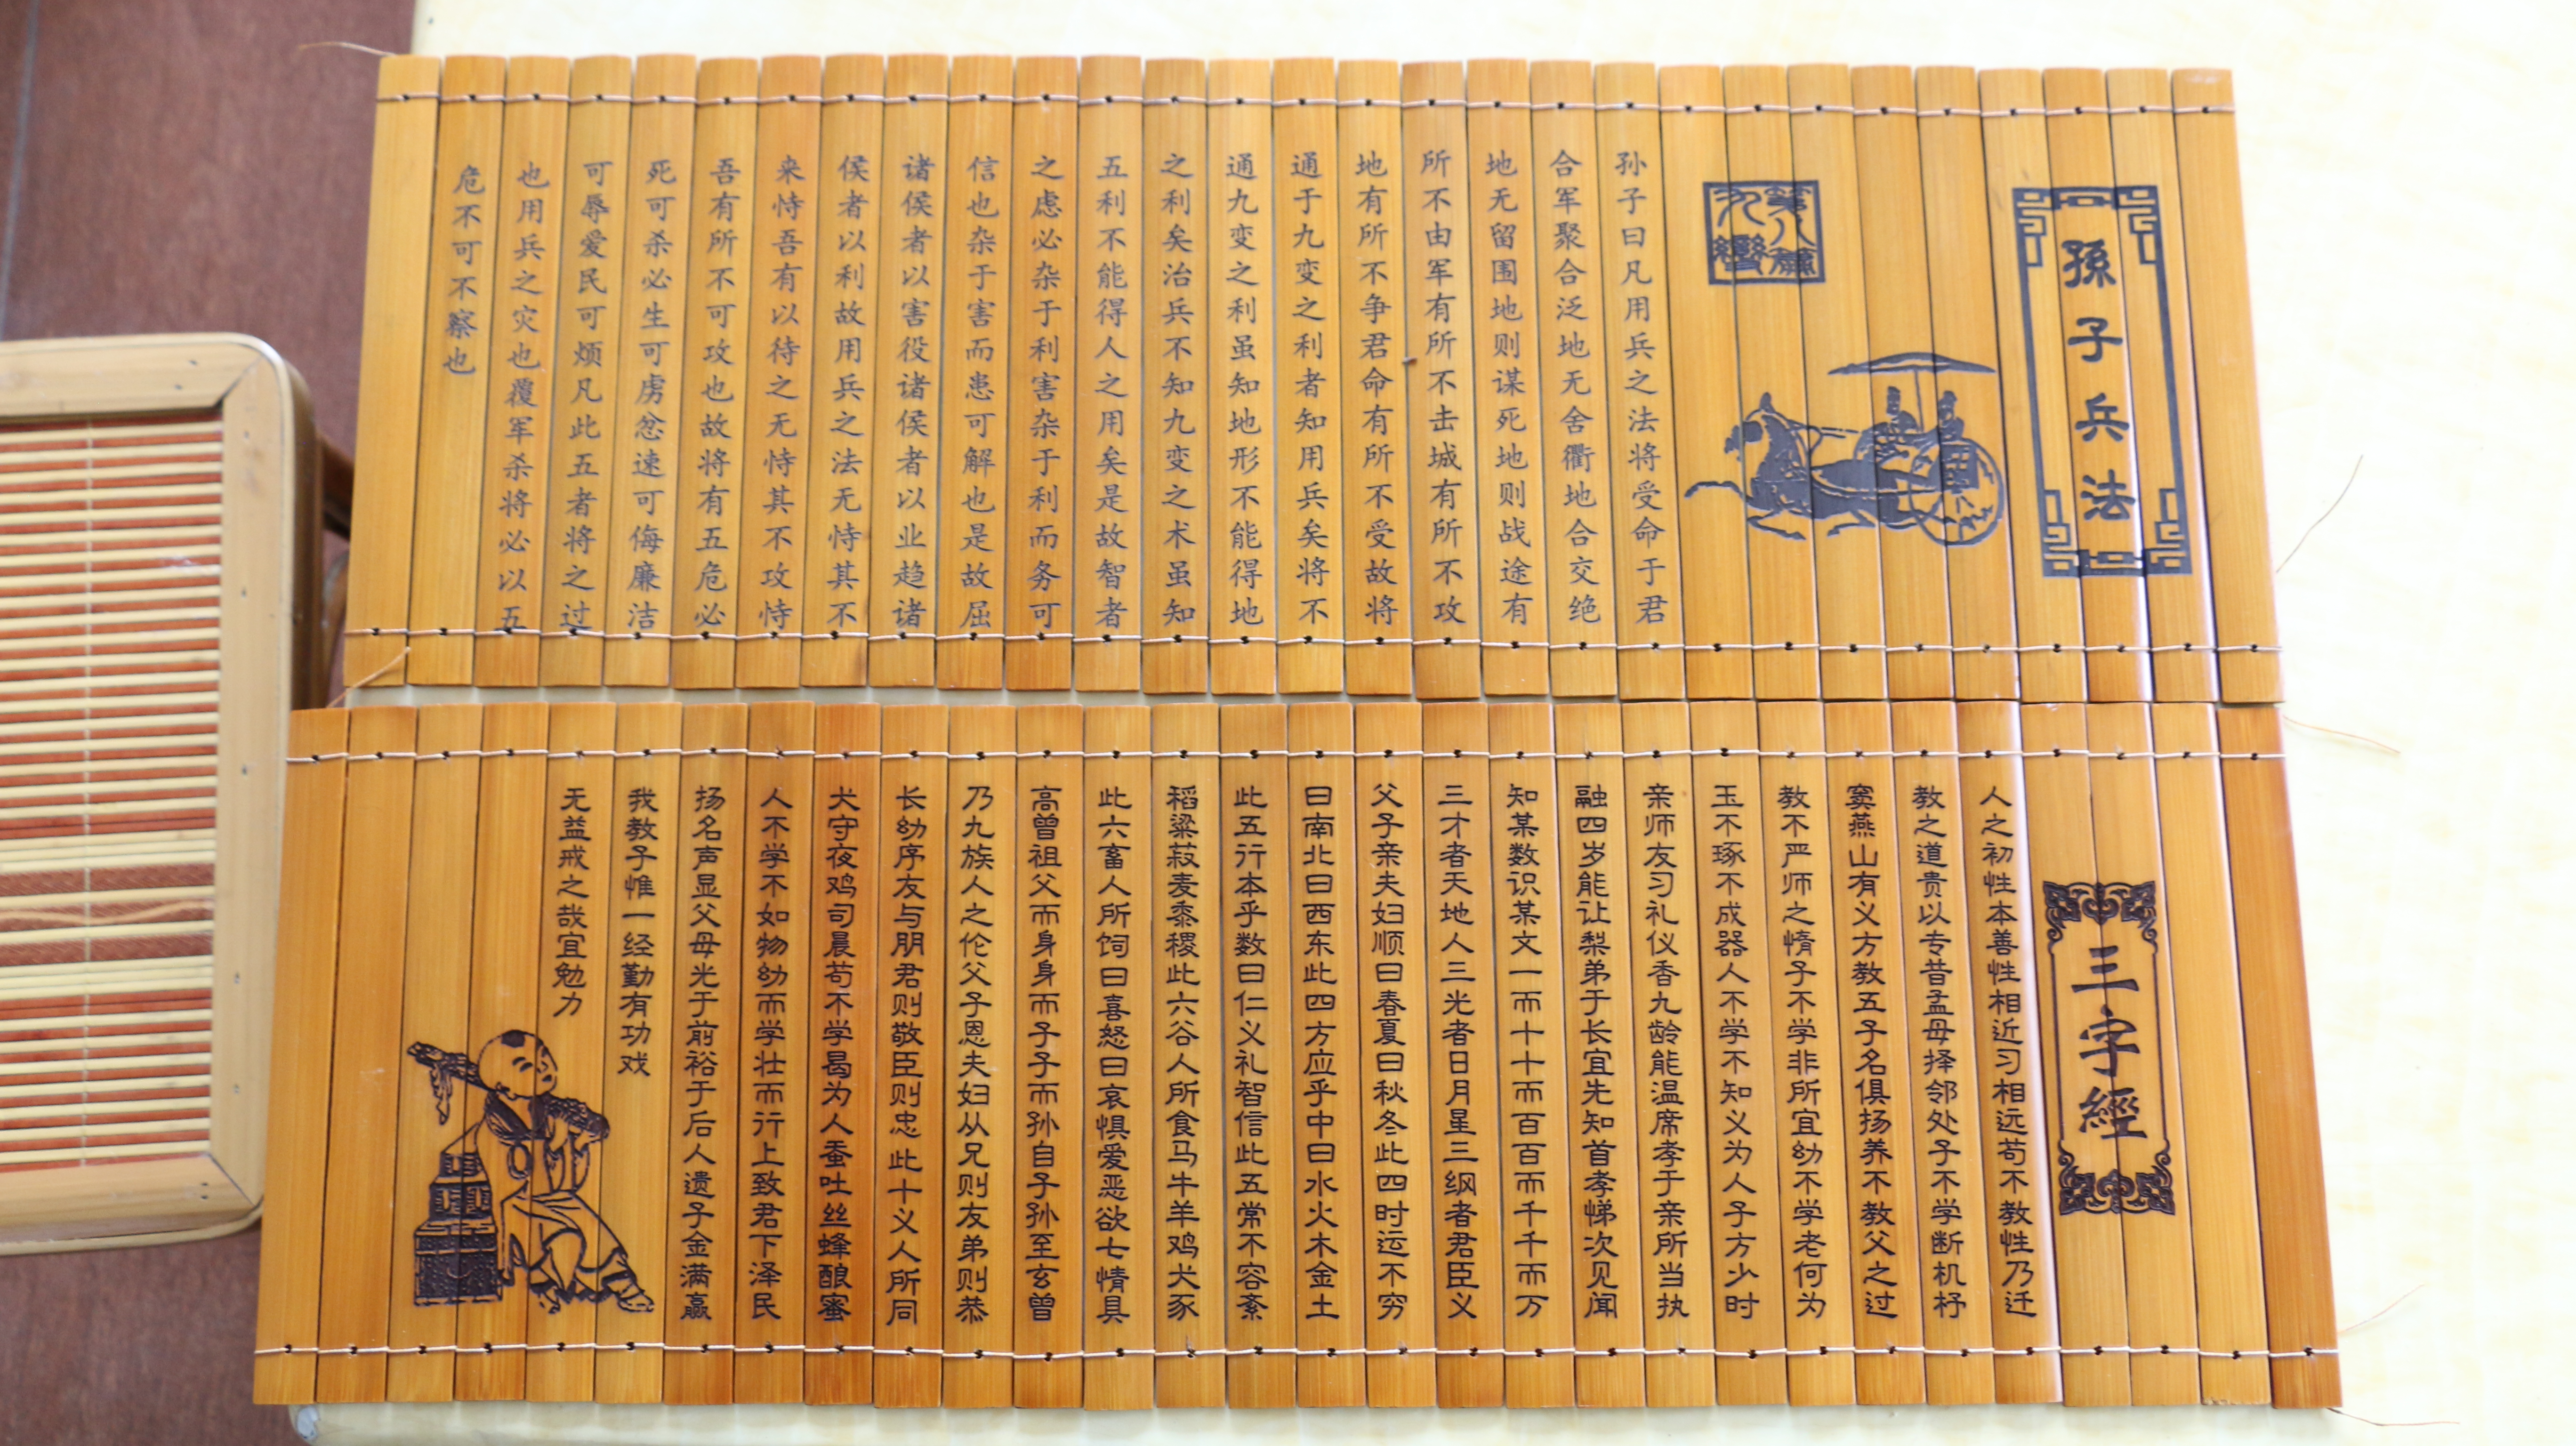 孫子兵法
第八篇
九變
孙子曰凡用兵之法将受命于君
合军聚合泛地无舍衢地合交绝
地无留围地则谋死地则战途有
所不由军有所不击城有所不攻
地有所不争君命有所不受故将
通于九变之利者知用兵矣将不
通九变之利虽知地形不能得地
之利矣治兵不知九变之术虽知
五利不能得人之用矣是故智者
之虑必杂于利害杂于利而务可
信也杂于害而患可解也是故屈
诸侯者以害役诸侯者以业趋诸
侯者以利故用兵之法无恃其不
来恃吾有以待之无恃其不攻恃
吾有所不可攻也故将有五危必
死可杀必生可虏忿速可侮廉洁
可辱爱民可烦凡此五者将之过
也用兵之灾也覆军杀将必以五
危不可不察也
三字經
人之初性本善性相近习相远苟不教性乃迁
教之道贵以专昔孟母择邻处子不学断机杼
窦燕山有义方教五子名俱扬养不教父之过
教不严师之惰子不学非所宜幼不学老何为
玉不琢不成器人不学不知义为人子方少时
亲师友习礼仪香九龄能温席孝于亲所当执
融四岁能让梨弟于长宜先知首孝悌次见闻
知某数识某文一而十十而百百而千千而万
三才者天地人三光者日月星三纲者君臣义
父子亲夫妇顺曰春夏曰秋冬此四时运不穷
曰南北曰西东此四方应乎中曰水火木金土
此五行本乎数曰仁义礼智信此五常不容紊
稻粱菽麦黍稷此六谷人所食马牛羊鸡犬豕
此六畜人所饲曰喜怒曰哀惧爱恶欲七情具
高曾祖父而身身而子子而孙自子孙至玄曾
乃九族人之伦父子恩夫妇从兄则友弟则恭
长幼序友与朋君则敬臣则忠此十义人所同
犬守夜鸡司晨苟不学曷为人蚕吐丝蜂酿蜜
人不学不如物幼而学壮而行上致君下泽民
扬名声显父母光于前裕于后人遗子金满赢
我教子惟一经勤有功戏
无益戒之哉宜勉力